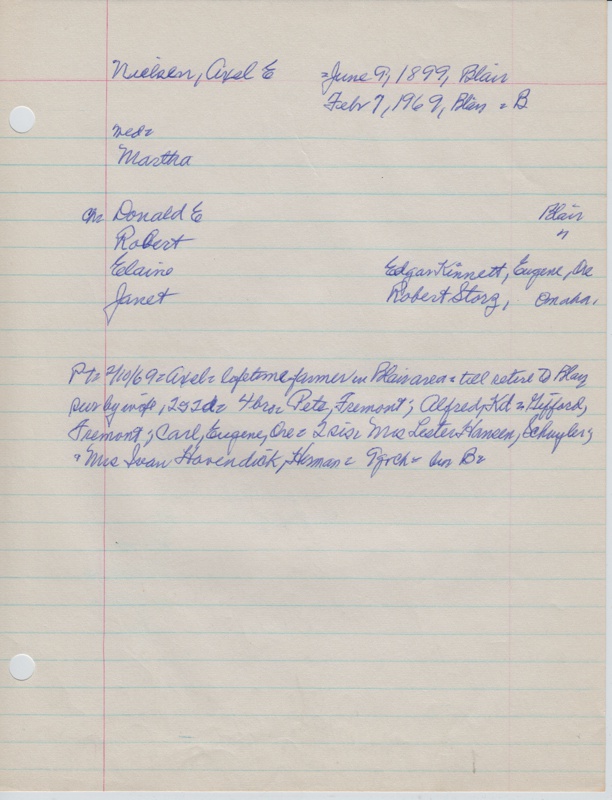 Nielsen, Axel E =June 9, 1899, Blair
Febr 7, 1969, Blair = B
med=
Martha
Ch= Donald E Blair
Robert "
Elaine Edgar Kinnett, Eugene, Ore
Janet Robert Storz, Omaha,
Pt= 2/10/69= Axel= lifetime farmer in Blair area = till retire to Blair
sur by wife, 2s2d= 4 bro= Pete, Fremont; Alfred, Kd = Gifford,
Fremont; Carl, Eugene, Ore = 2 sis= Mrs Lester Hansen, Schuyler;
" Mrs Ivan Havendick, Herman = 9grch= bur B=